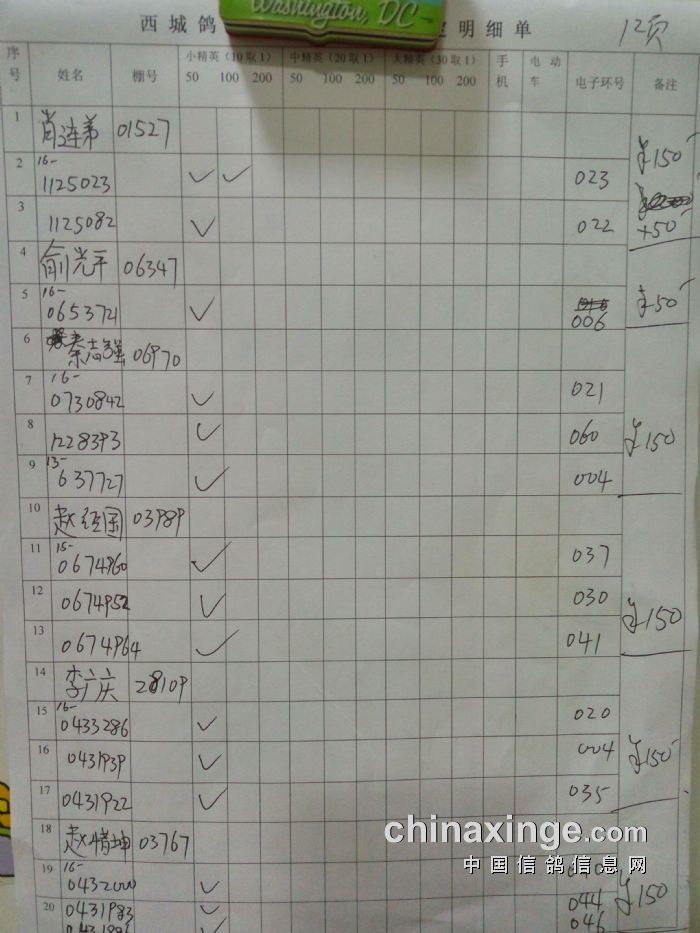 Washington, DC
西城鸽 定明细单 12页
序号 姓名 棚号 小精英(10取1) 50 100 200 中精英(20取1) 50 100 200 大精英(30取1) 50 100 200 手机 电动车 电子环号 备注
1 肖连弟 01527
2 16- 1125023 ✓ ✓ 023 ¥150
3 1125082 ✓ 022 +50
4 俞光平 06347
5 16- 065372 ✓ 006 ¥50
6 秦志强 06970
7 16- 0730842 ✓ 021
8 1228393 ✓ 060 ¥150
9 13- 637727 ✓ 004
10 赵经国 03989
11 15- 0674960 ✓ 037
12 0674952 ✓ 030
13 0674964 ✓ 041 ¥150
14 李广庆 28109
15 16- 0433286 ✓ 020
16 0431939 ✓ 004 ¥150
17 0431922 ✓ 035
18 赵精坤 03767
chinaxinge.com
中国信鸽信息网
19 16- 0432000 ✓
20 0431983 ✓ 044 ¥150
✓ 046